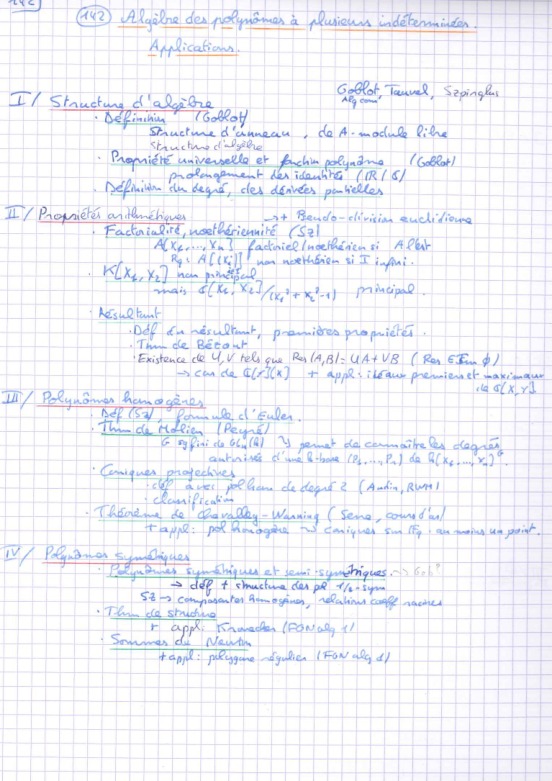 142
(142) Algèbre des polynômes à plusieurs indéterminées.
Applications.
Goblot, Tauvel, Szpirglas
Alg com
I/ Structure d'algèbre
· Définition (Goblot)
Structure d'anneau, de A-module libre
structure d'algèbre
· Propriété universelle et fonction polynôme (Goblot)
prolongement des identités (IR / C)
· Définition du degré, des dérivées partielles
II/ Propriétés arithmétiques → + Pseudo-division euclidienne
· Factorialité, noethérianité (Sz)
A[X1,...,Xn] factoriel/noethérien si A l'est
Rq: A[(Xi)] non noethérien si I infini.
· K[X1, X2] non principal
mais C[X1, X2]/(X1² + X2² - 1) principal.
· Résultant
· Déf du résultant, premières propriétés.
· Thm de Bézout
· Existence de U, V tels que Res(A,B) = UA + VB (Res ∈ Im φ)
→ cas de C[Y][X] + appl: idéaux premiers et maximaux
de C[X,Y]
III/ Polynômes homogènes
· Déf (Sz), formule d'Euler.
· Thm de Molien (Peyré)
G sg fini de Gln(k) permet de connaître les degrés
autorisés d'une k-base (P1,...,Pn) de k[X1,...,Xn]^G.
· Coniques projectives
· déf avec pol hom de degré 2 (Audin, RW)
· classification
· Théorème de Chevalley-Warning (Serre, cours d'ar)
+ appl: pol homogène → coniques sur Fq: au moins un point.
IV/ Polynômes symétriques
· Polynômes symétriques et semi-symétriques. → Gob?
→ déf + structure des pol 1/2-sym
Sz → composantes homogènes, relations coeff racines
· Thm de structure
+ appl. Kronecker (FGN alg 1)
· Sommes de Newton
+ appl: polygone régulier (FGN alg 1)